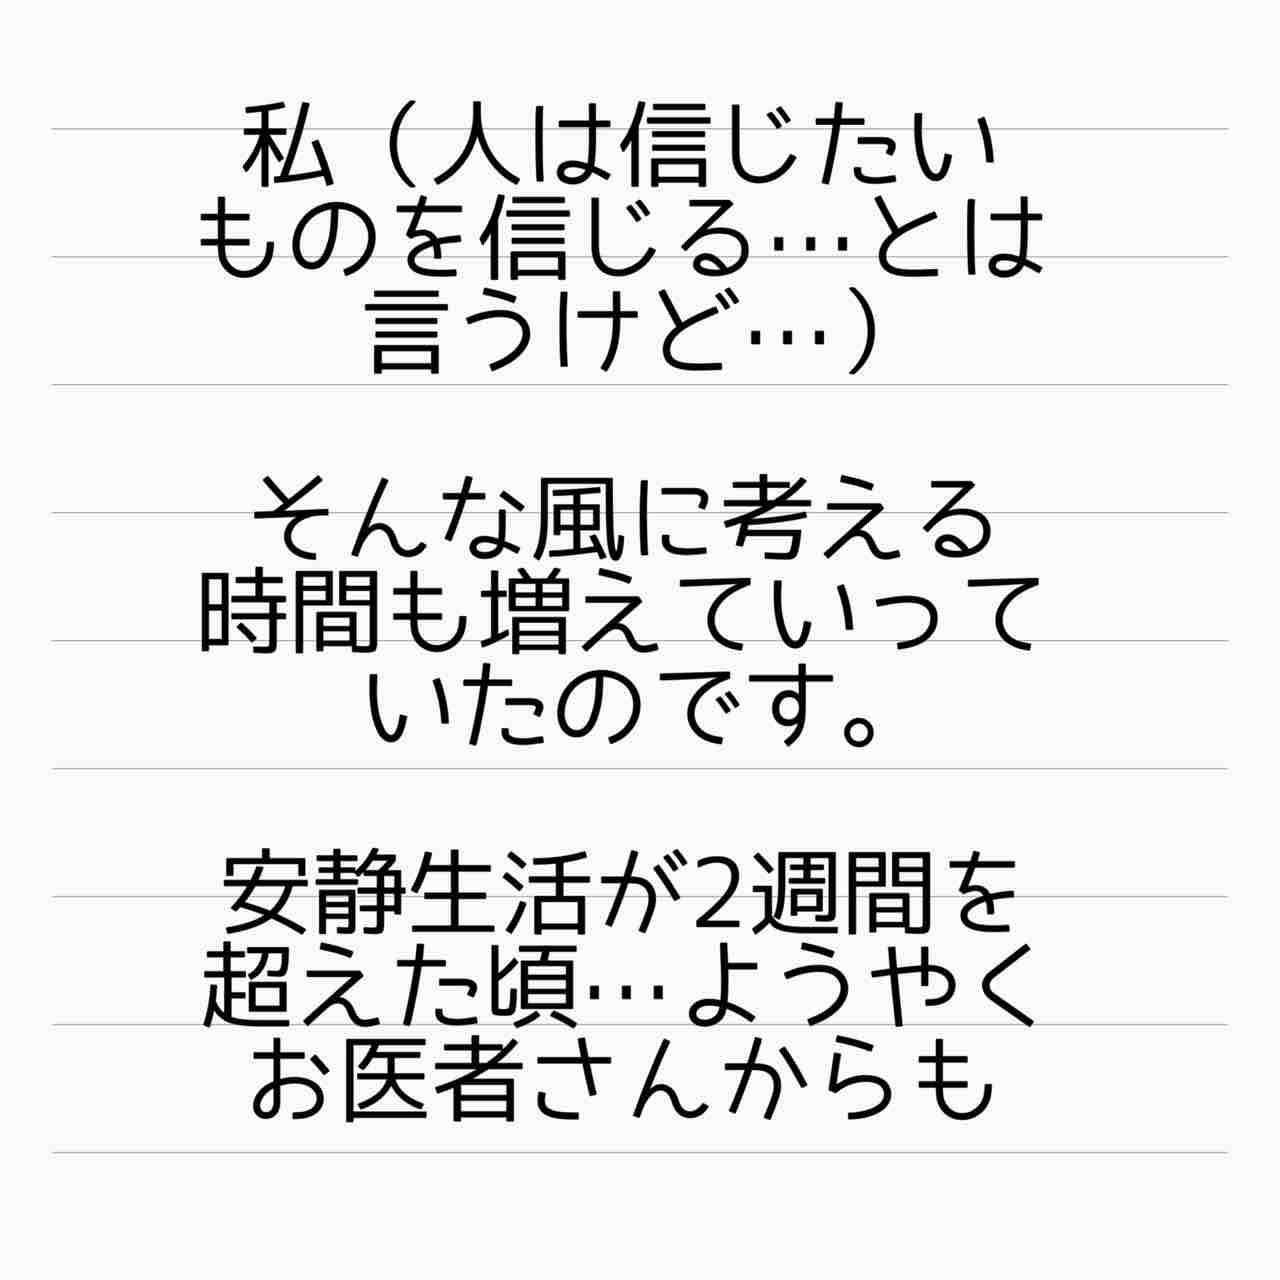 私（人は信じたい
ものを信じる…とは
言うけど…）
そんな風に考える
時間も増えていって
いたのです。
安静生活が2週間を
超えた頃…ようやく
お医者さんからも